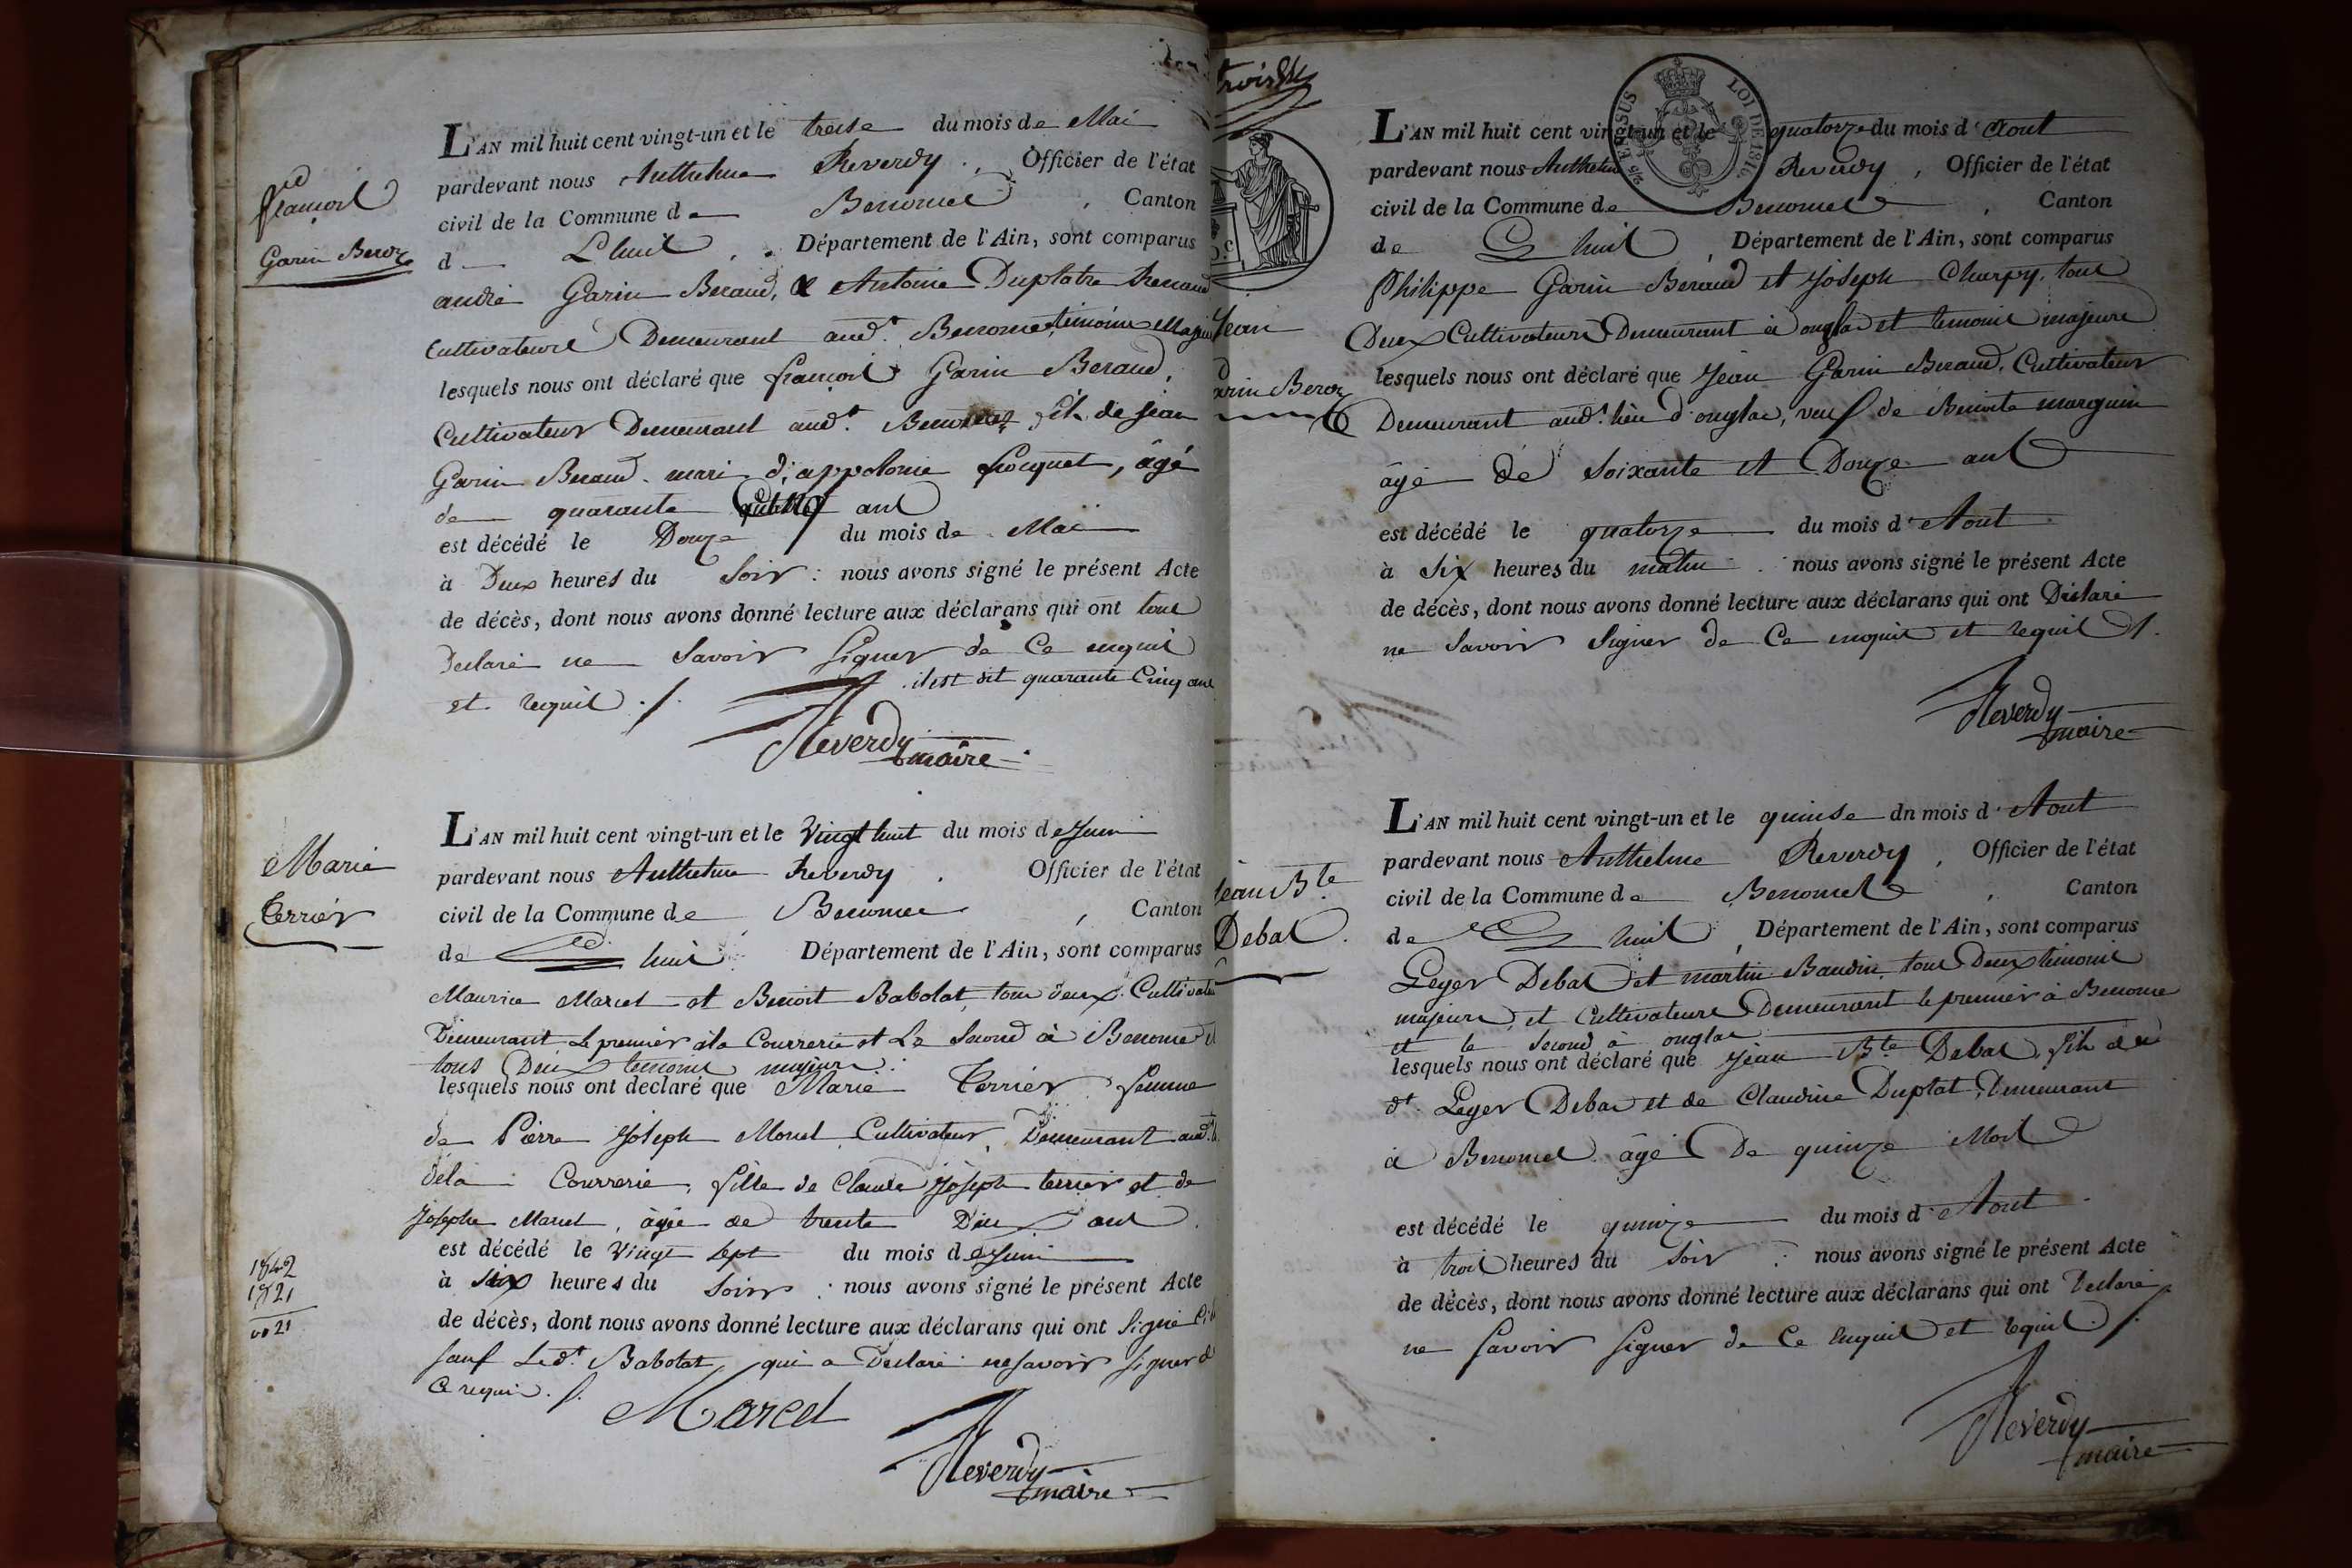 françois
Garin Beroz
L'AN mil huit cent vingt-un et le treise du mois de Mai
pardevant nous Anthelme Reverdy, Officier de l'état
civil de la Commune de Benonce, Canton
d Lhuis, Département de l'Ain, sont comparus
andré Garin Beraud, & Antoine Duplatre
cultivateurs Demeurant aud.t Benonce témoins Majeurs
lesquels nous ont déclaré que françois Garin Beraud,
Cultivateur Demeurant aud.t fils de jean
Garin Beraud mari d'appolonie focquet, âgé
de quarante ans
est décédé le Douze du mois de Maï
à Deux heures du Soir : nous avons signé le présent Acte
de décès, dont nous avons donné lecture aux déclarans qui ont tous
Declaré ne Savoir Signer de Ce enquis
et requis ./.
il est dit quarante Cinq ans
Reverdy
maire
Marie
Terrier
L'AN mil huit cent vingt-un et le Vingt huit du mois de Juin
pardevant nous Anthelme Reverdy, Officier de l'état
civil de la Commune de Benonce, Canton
de Lhuis Département de l'Ain, sont comparus
Maurice Marcel et Benoit Babolat, tous deux Cultivate
Demeurant Le premier à la Courrerie et Le Second à Benonce et
tous Deux temoins majeurs
lesquels nous ont declaré que Marie Terrier femme
de Pierre Joseph Morel Cultivateur, Demeurant aud.t
dela Courrerie, fille de Claude Joseph terrier et de
Josephe Marcel, âgée de trente Deux ans
est décédé le Vingt Sept du mois de Juin
à Six heures du Soir : nous avons signé le présent Acte
de décès, dont nous avons donné lecture aux déclarans qui ont Signé
sauf Led.t Babolat, qui a Declaré ne savoir signer d
Ce requis ./.
1842
1821
0021
Marcel
Reverdy
maire
trois
2/5 EN SUS
LOI DE 1816
Jean
arin Beroz
L'AN mil huit cent vingt-un et le quatorze du mois d'Aout
pardevant nous Anthelme Reverdy, Officier de l'état
civil de la Commune de Benonce, Canton
de Lhuis, Département de l'Ain, sont comparus
Philippe Garin Beraud et Joseph Charpy, tous
Deux Cultivateurs Demeurant à onglas et temoins majeurs
lesquels nous ont déclaré que Jean Garin Beraud, Cultivateur
Demeurant aud.t lieu d'onglas, veuf de Benoite marguin
âgé de Soixante et Douze ans
est décédé le quatorze du mois d'Aout
à Six heures du matin : nous avons signé le présent Acte
de décès, dont nous avons donné lecture aux déclarans qui ont Déclaré
ne Savoir Signer de Ce enquis et requis ./.
Reverdy
maire
jean B.te
Debat
L'AN mil huit cent vingt-un et le quinse dn mois d'Aout
pardevant nous Anthelme Reverdy, Officier de l'état
civil de la Commune de Benonce, Canton
de Lhuis, Département de l'Ain, sont comparus
Leger Debat et martin Baudin tous Deux temoins
majeurs et Cultivateurs Demeurant le premier à Benonce
et le Second à onglas
lesquels nous ont déclaré que jean B.te Debat, fils de
d.t Leger Debat et de Claudine Duplat, Demeurant
à Benonce âgé De quinze Mois
est décédé le quinze du mois d'Aout
à trois heures du Soir : nous avons signé le présent Acte
de décès, dont nous avons donné lecture aux déclarans qui ont Declaré
ne Savoir Signer de Ce Enquis et requis ./.
Reverdy
maire